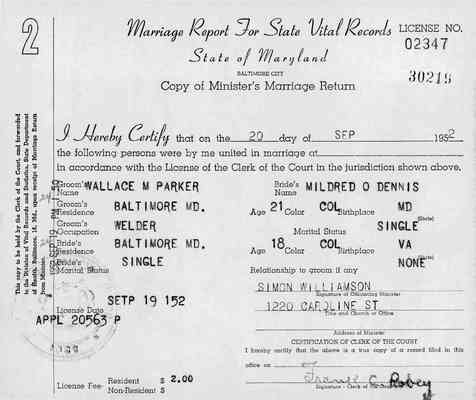 2
Marriage Report For State Vital Records
LICENSE NO.
02347
State of Maryland
BALTIMORE CITY
30219
Copy of Minister's Marriage Return
I Hereby Certify that on the 20 day of SEP 1952
the following persons were by me united in marriage at
in accordance with the License of the Clerk of the Court in the jurisdiction shown above.
Groom's Name WALLACE M PARKER
Bride's Name MILDRED O DENNIS
Groom's Residence BALTIMORE MD.
Age 21 Color COL Birthplace MD
(State)
Groom's Occupation WELDER
Marital Status SINGLE
Bride's Residence BALTIMORE MD.
Age 18 Color COL Birthplace VA
(State)
Bride's Marital Status SINGLE
Relationship to groom if any NONE
SIMON WILLIAMSON
Signature of Officiating Minister
SETP 19 152
License Date
1220 CAROLINE ST
Title and Church or Office
APPL 20563 P
Address of Minister
CERTIFICATION OF CLERK OF THE COURT
I hereby certify that the above is a true copy of a record filed in this
office on
License Fee- Resident $ 2.00
Non-Resident $
C. Robey
Signature - Clerk of the Court
This copy to be held by the Clerk of the Court, and forwarded
to the Division of Vital Records and Statistics, State Department
of Health, Baltimore, 18, Md., upon receipt of Marriage Return
from Minister.